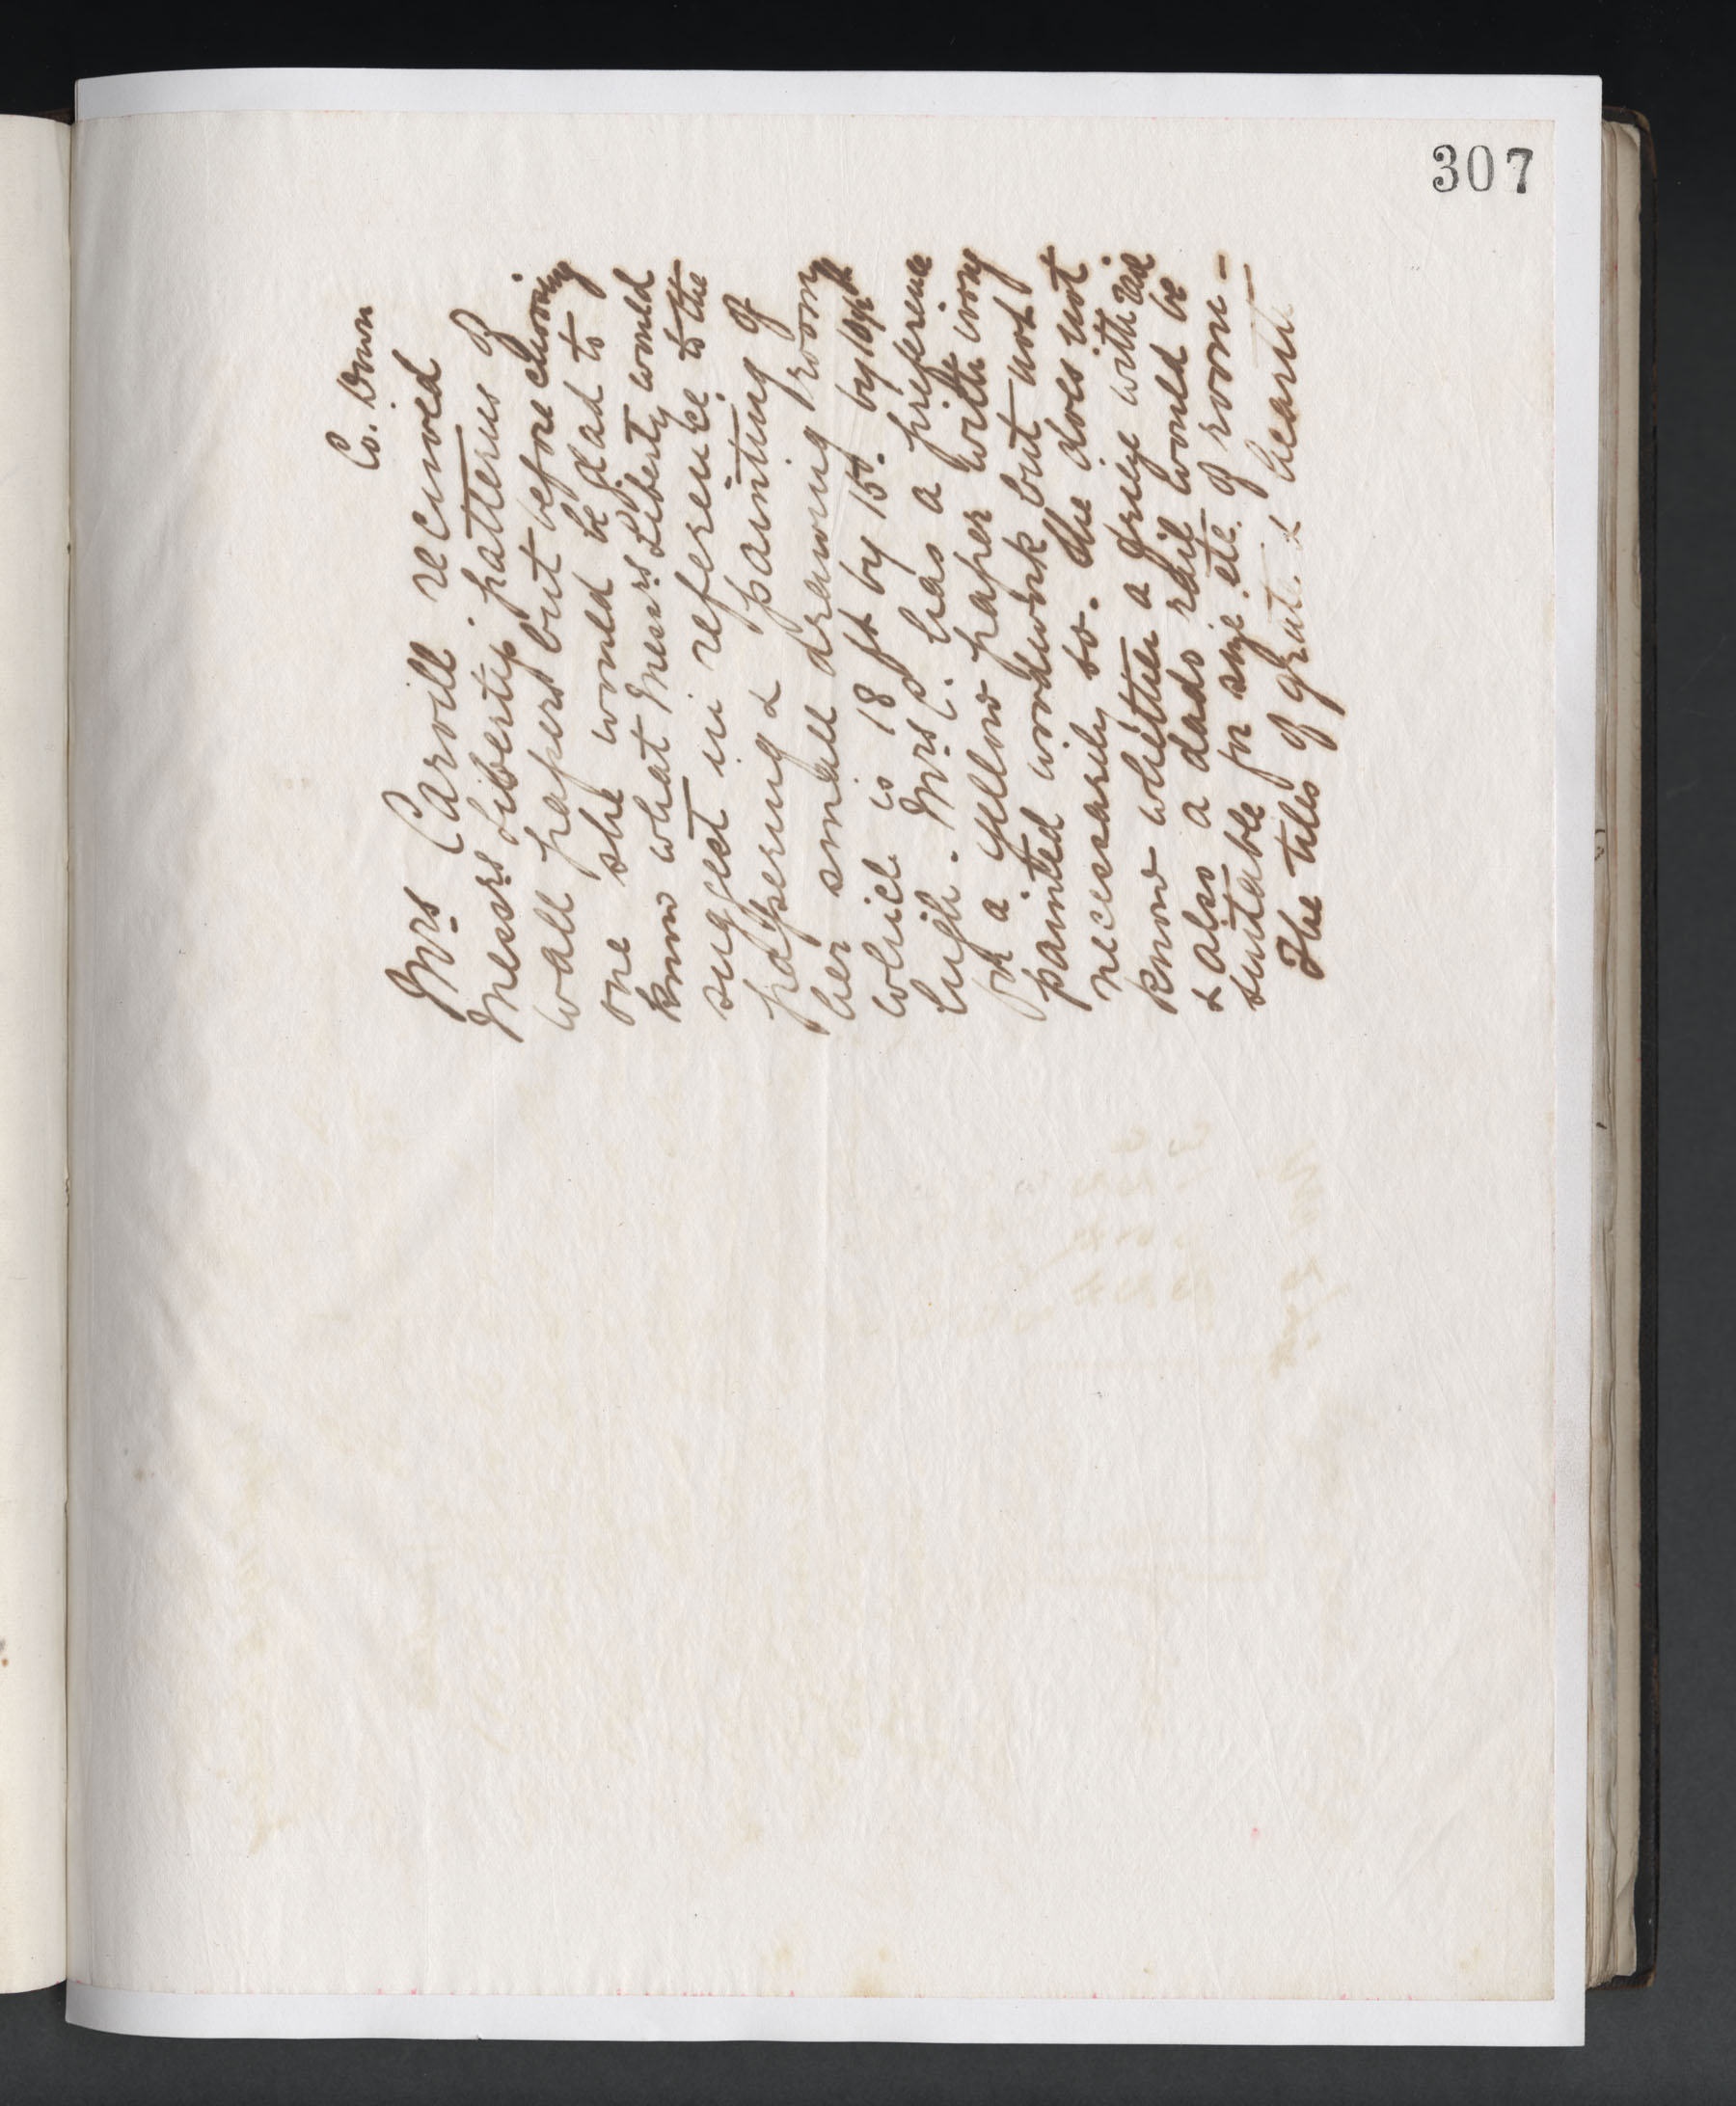 307
Co. Down
Mrs Carvill received
Messrs Libertys patterns of
wall papers but before choosing
one she would be glad to
know what Messrs Liberty would
suggest in reference to the
papering & painting of
her small drawing room
which is 18 ft by 15. by 10 ft
high. Mrs C. has a preference
for a yellow paper with ivory
painted woodwork but not
necessarily so. She does not
know whether a frieze with rail
& also a dado rail would be
suitable for size etc. of room –
The tiles of grate & hearth